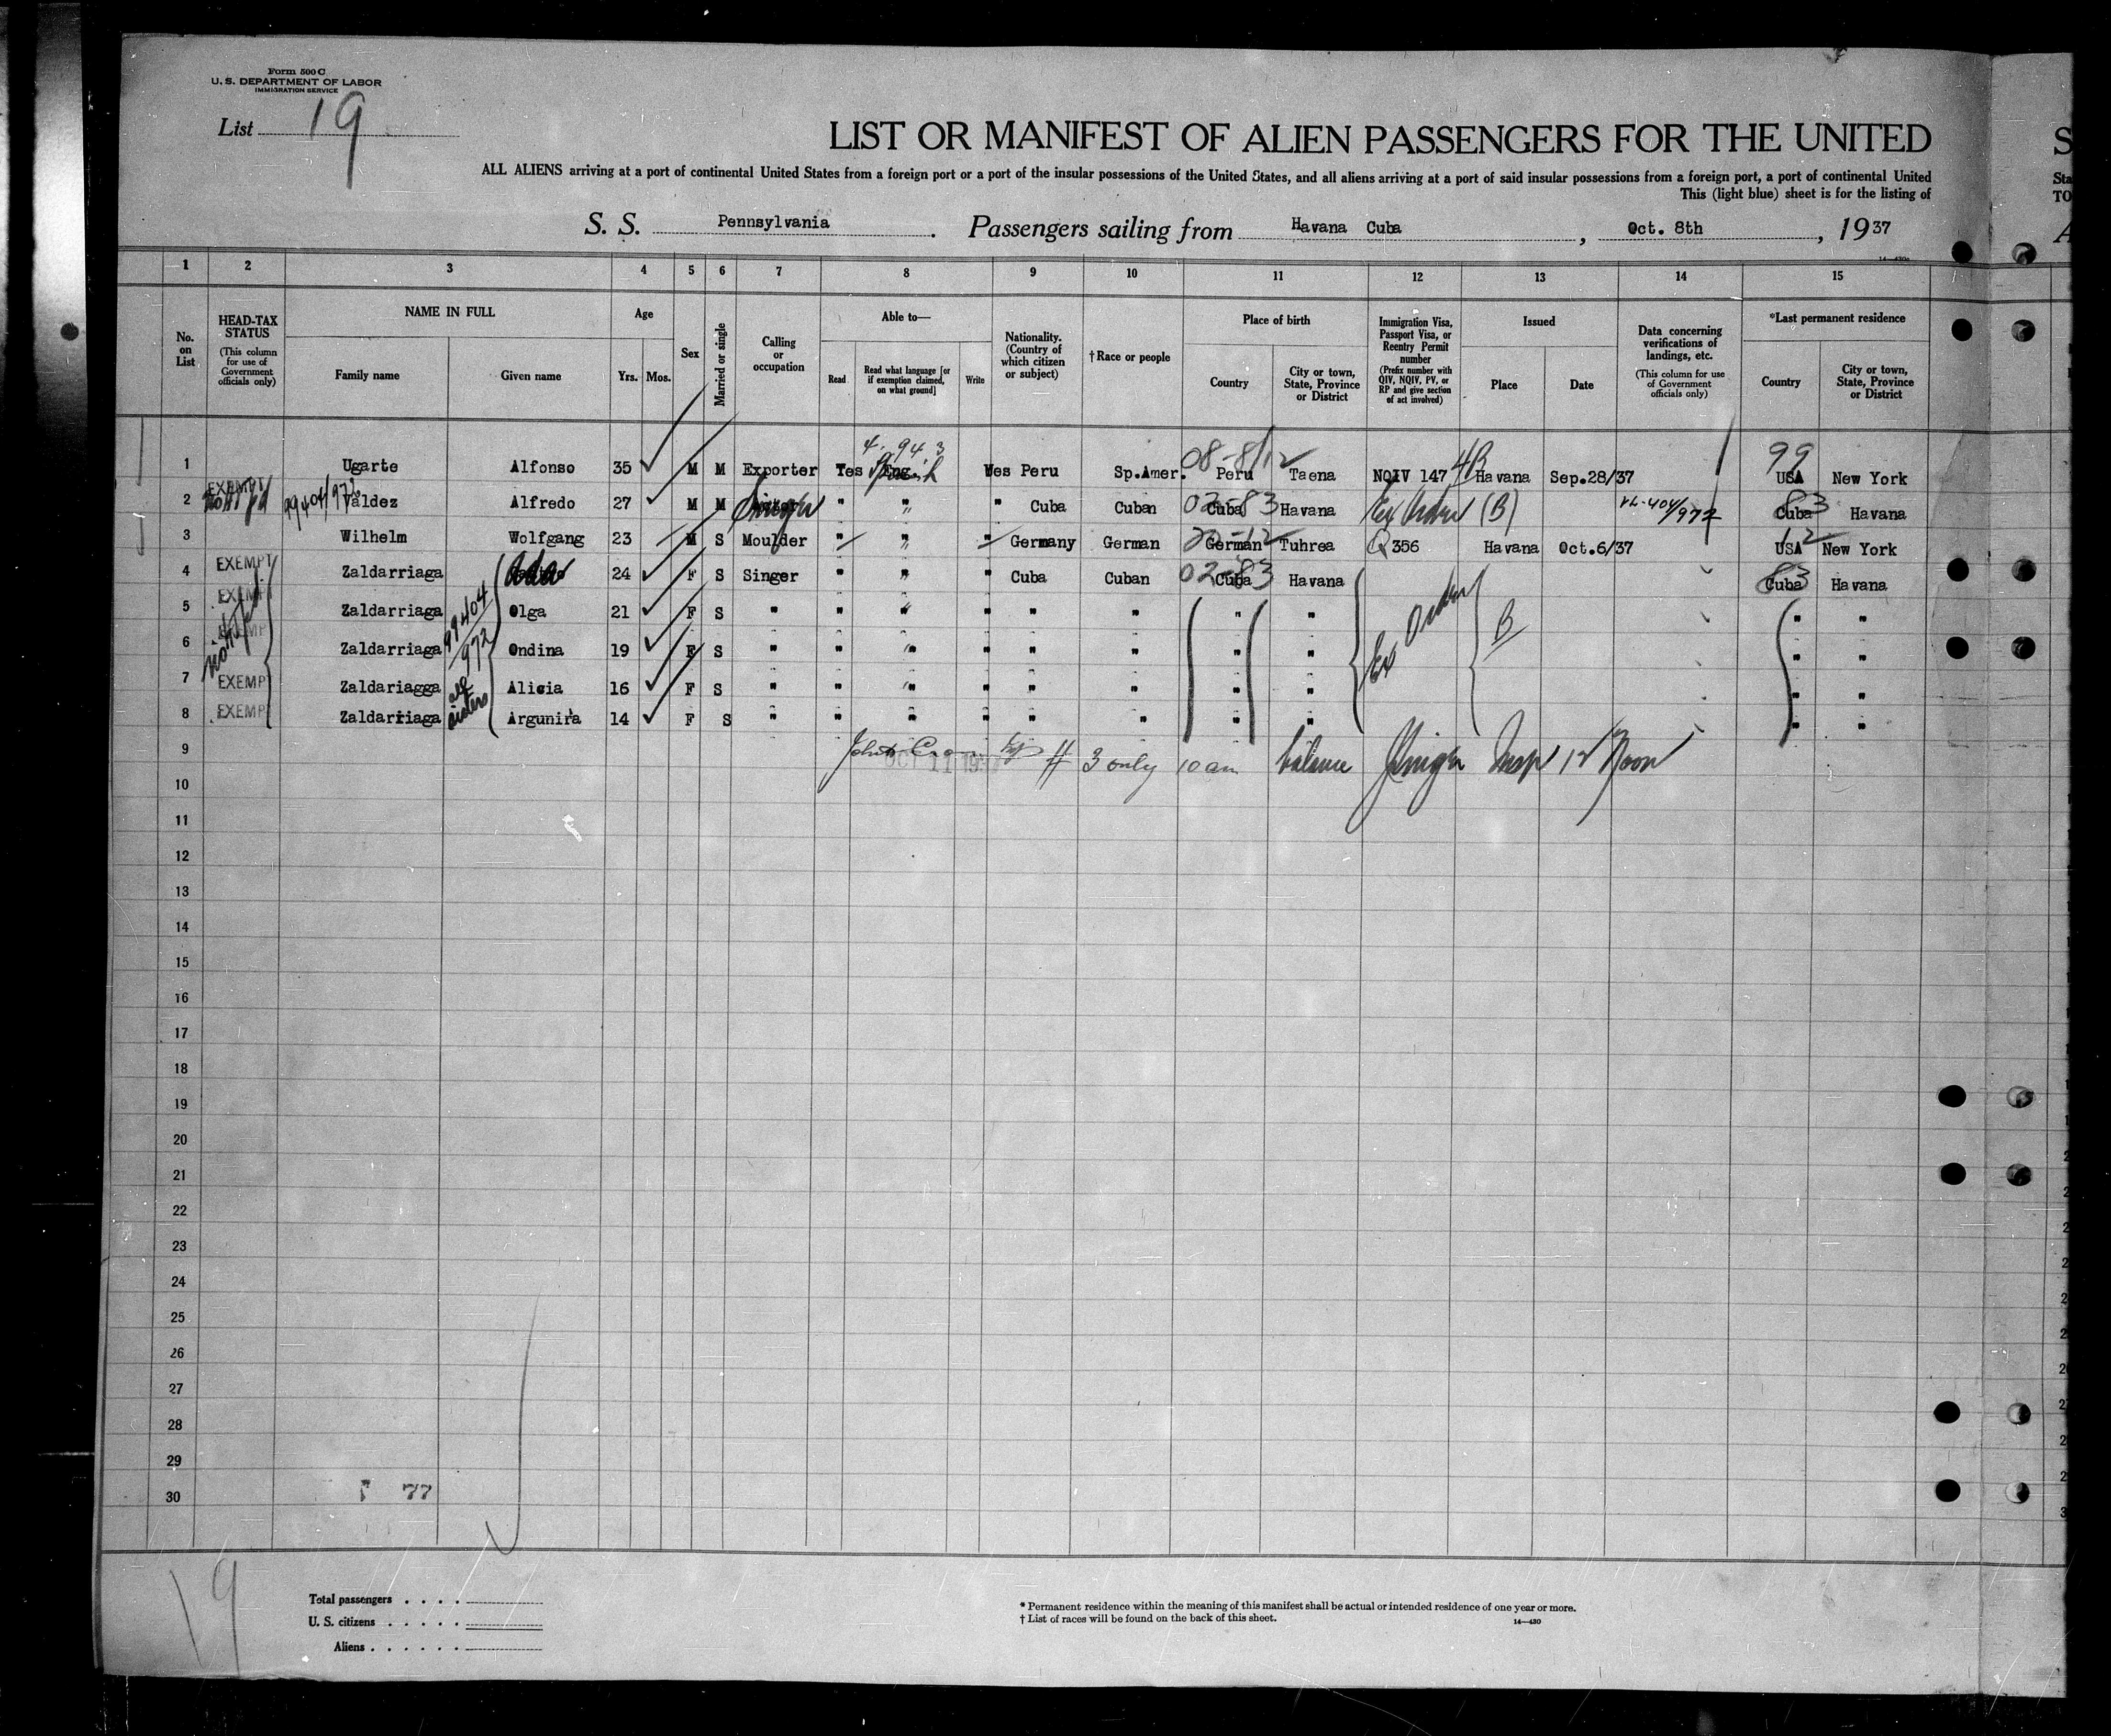 Form 500 C
U. S. DEPARTMENT OF LABOR
IMMIGRATION SERVICE
List 19
LIST OR MANIFEST OF ALIEN PASSENGERS FOR THE UNITED
S
ALL ALIENS arriving at a port of continental United States from a foreign port or a port of the insular possessions of the United States, and all aliens arriving at a port of said insular possessions from a foreign port, a port of continental United
Sta
This (light blue) sheet is for the listing of
TO
S. S. Pennsylvania. Passengers sailing from Havana Cuba, Oct. 8th, 1937
A
1 2 3 4 5 6 7 8 9 10 11 12 13 14 15
No. on List
HEAD-TAX STATUS (This column for use of Government officials only)
NAME IN FULL
Family name
Given name
Age
Yrs. Mos.
Sex
Married or single
Calling or occupation
Able to—
Read
Read what language [or if exemption claimed, on what ground]
Write
Nationality. (Country of which citizen or subject)
†Race or people
Place of birth
Country
City or town, State, Province or District
Immigration Visa, Passport Visa, or Reentry Permit number (Prefix number with QIV, NQIV, PV, or RP and give section of act involved)
Issued
Place
Date
Data concerning verifications of landings, etc. (This column for use of Government officials only)
*Last permanent residence
Country
City or town, State, Province or District
4-94.3
1 Ugarte Alfonso 35 M M Exporter Yes Eng. Yes Peru Sp.Amer. 08-8/12 Peru Taena NQIV 147 4B Havana Sep.28/37 99 USA New York
2 EXEMPT 99404/972 Valdez Alfredo 27 M M Singer " " " Cuba Cuban 02-83 Cuba Havana Ex Order (B) 404/972 83 Cuba Havana
3 Wilhelm Wolfgang 23 M S Moulder " " " Germany German German Tuhrea Q 356 Havana Oct.6/37 12 USA New York
4 EXEMPT Zaldarriaga Ada 24 F S Singer " " " Cuba Cuban 02-83 Cuba Havana 83 Cuba Havana
5 EXEMPT Zaldarriaga Olga 21 F S " " " " " " " " " "
6 EXEMPT Zaldarriaga 99404/972 Ondina 19 F S " " " " " " " " Ex Order B " "
7 EXEMP Zaldariagga Alicia 16 F S " " " " " " " " " "
8 EXEMP Zaldarriaga sisters Argunira 14 F S " " " " " " " " " "
9
OCT 11 19 # 3 only 10 am balance Insp 12 Noon
10
11
12
13
14
15
16
17
18
19
20
21
22
23
24
25
26
27
28
29
30
77
19
Total passengers
U. S. citizens
Aliens
* Permanent residence within the meaning of this manifest shall be actual or intended residence of one year or more.
† List of races will be found on the back of this sheet.
14—430